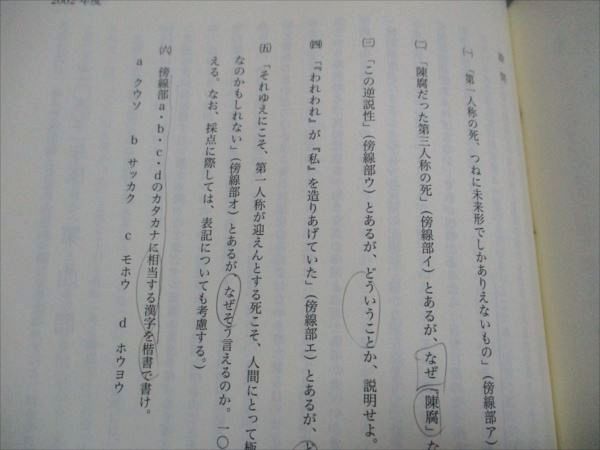 2002年度
設問
㈠ 「第一人称の死、つねに未来形でしかありえないもの」(傍線部ア)
㈡ 「陳腐だった第三人称の死」(傍線部イ)とあるが、なぜ「陳腐」な
㈢ 「この逆説性」(傍線部ウ)とあるが、どういうことか、説明せよ。
㈣ 「『われわれ』が『私』を造りあげていた」(傍線部エ)とあるが、ど
㈤ 「それゆえにこそ、第一人称が迎えんとする死こそ、人間にとって極
なのかもしれない」(傍線部オ)とあるが、なぜそう言えるのか。一〇
える。なお、採点に際しては、表記についても考慮する。)
㈥ 傍線部a・b・c・dのカタカナに相当する漢字を楷書で書け。
a クウソ b サッカク c モホウ d ホウヨウ